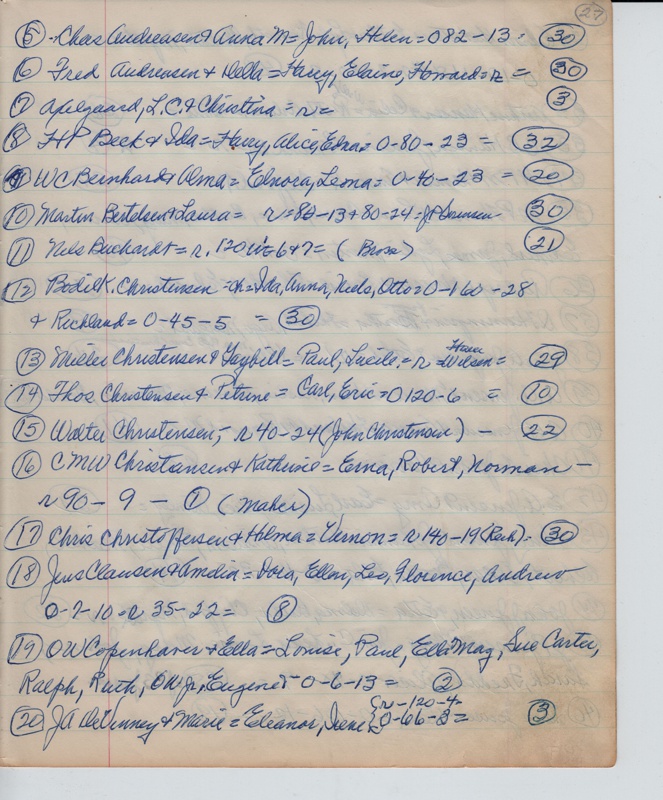 27
⑤ Chas Andreasen + Anna M = John, Helen = O 82-13 = 30
⑥ Fred Andreasen + Della = Harry, Elaine, Howard = r = 30
⑦ Apelgaard, L.C. + Christina = r = 3
⑧ HP Beck + Ida = Harry, Alice, Edna = O-80-23 = 32
⑨ WC Bernhardt + Alma = Elnora, Leona = O-40-23 = 20
⑩ Martin Bertelsen + Laura = r = 80-13 + 80-24 = JP Sorensen 30
⑪ Nels Buchardt = r. 120 in = 6+7 = (Bross) 21
⑫ Bodil K. Christensen = ch = Ida, Anna, Niels, Otto = O-160-28
+ Richland = O-45-5 = 30
⑬ Christensen + = Paul, Lucile = r = Wilson = 29
⑭ Thos Christensen + Petrine = Carl, Eric = O 120-6 = 10
⑮ Walter Christensen, - r 40-24 (John Christensen) - 22
⑯ CMW Christiansen + Katherine = Erna, Robert, Norman -
r 90-9 - 1 (Maher)
⑰ Chris Christoffersen + Hilma = Vernon = r 140-19 (Rech) = 30
⑱ Jens Clausen + Amelia = Dora, Ellen, Leo, Florence, Andrew
O-7-10 = r 35-22 = 8
⑲ OW Copenhaver + Ella = Louise, Paul, Ella May, Sue Carter,
Ralph, Ruth, OW Jr, Eugene - O-6-13 = 2
⑳ JA DeVinney + Marie = Eleanor, Irene { r-120-4
O-66-3 = 3